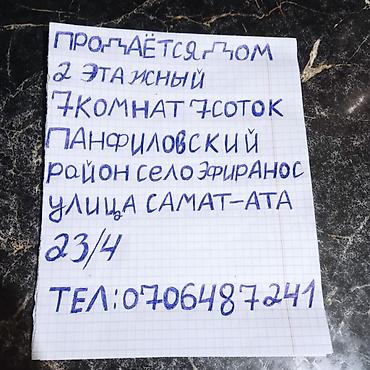 ПРОДАЁТСЯ ДОМ
2 ЭТАЖНЫЙ
7 КОМНАТ 7 СОТОК
ПАНФИЛОВСКИЙ
РАЙОН СЕЛО ЭФИРАНОС
УЛИЦА САМАТ-АТА
23/4
ТЕЛ:0706487241